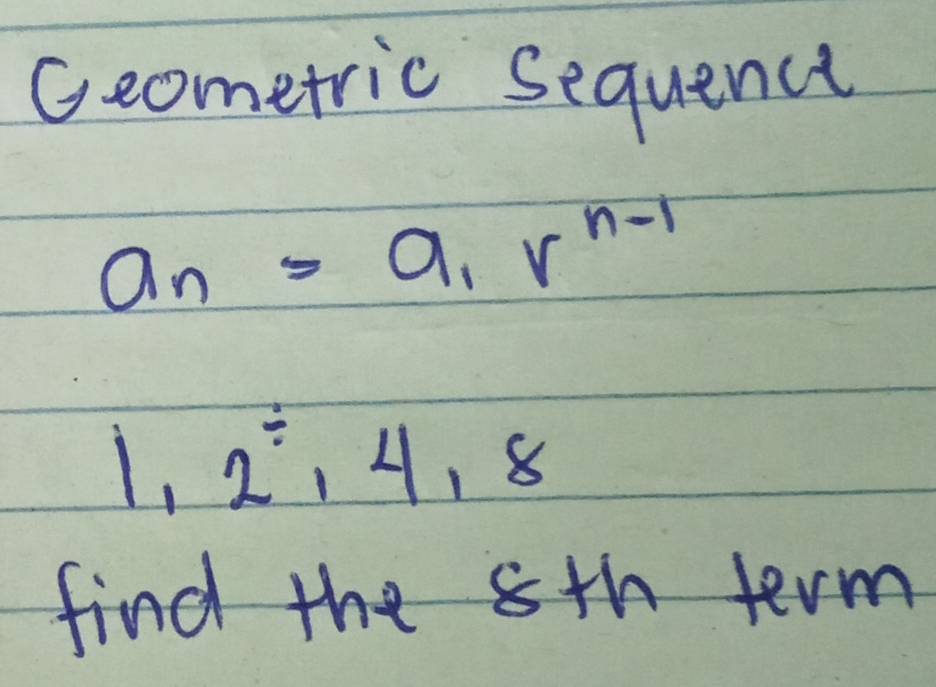 Geometric Sequence
an = a₁ rⁿ⁻¹
1, 2÷, 4, 8
find the 8th term